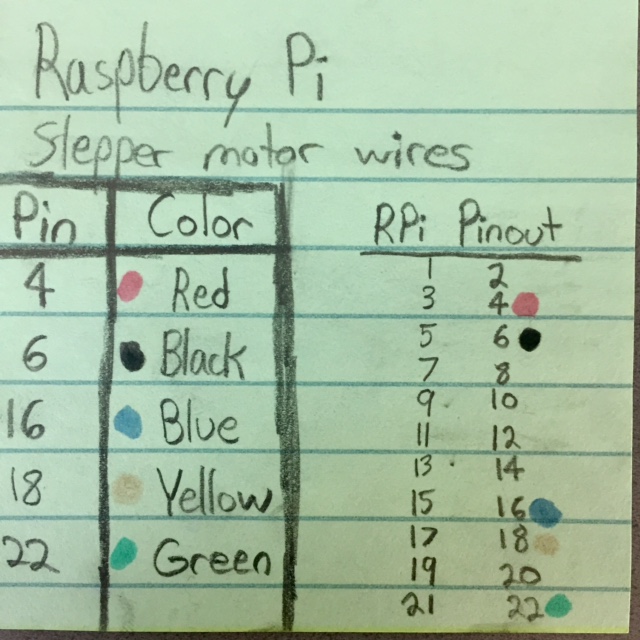 Raspberry Pi
Stepper motor wires
Pin Color
4 Red
6 Black
16 Blue
18 Yellow
22 Green
RPi Pinout
1 2
3 4
5 6
7 8
9 10
11 12
13 14
15 16
17 18
19 20
21 22